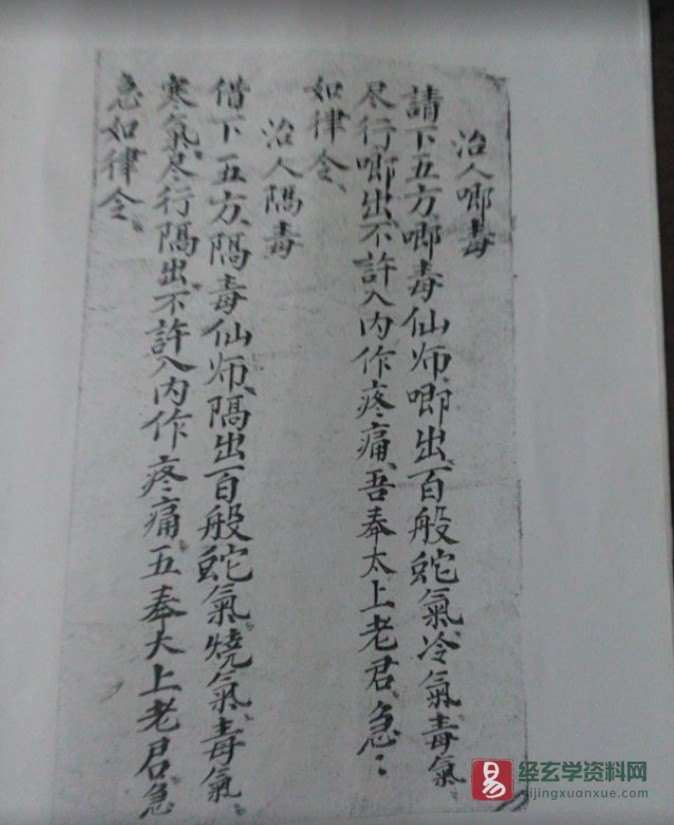 治人唧毒
請下五方唧毒仙师唧出百般蛇氣冷氣毒氣
尽行唧出不許入内作疼痛吾奉太上老君急〻
如律令
治人隔毒
借下五方隔毒仙师隔出百般蛇氣燒氣毒氣
寒氣尽行隔出不許入内作疼痛五奉大上老君急
急如律令
易 经玄学资料网
yijingxuanxue.com